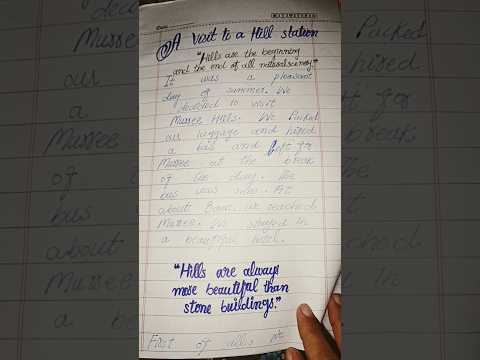 A Visit to a Hill station
"Hills are the beginning
and the end of all natural scenery."
It was a pleasant
day of summer. We
decided to visit
Murree Hills. We Packed
our luggage and hired
a bus and left for
Murree at the break
of the day. The
bus was new. At
about 8 a.m. we reached
Murree. We stayed in
a beautiful hotel.
"Hills are always
more beautiful than
stone buildings."
First of all, We